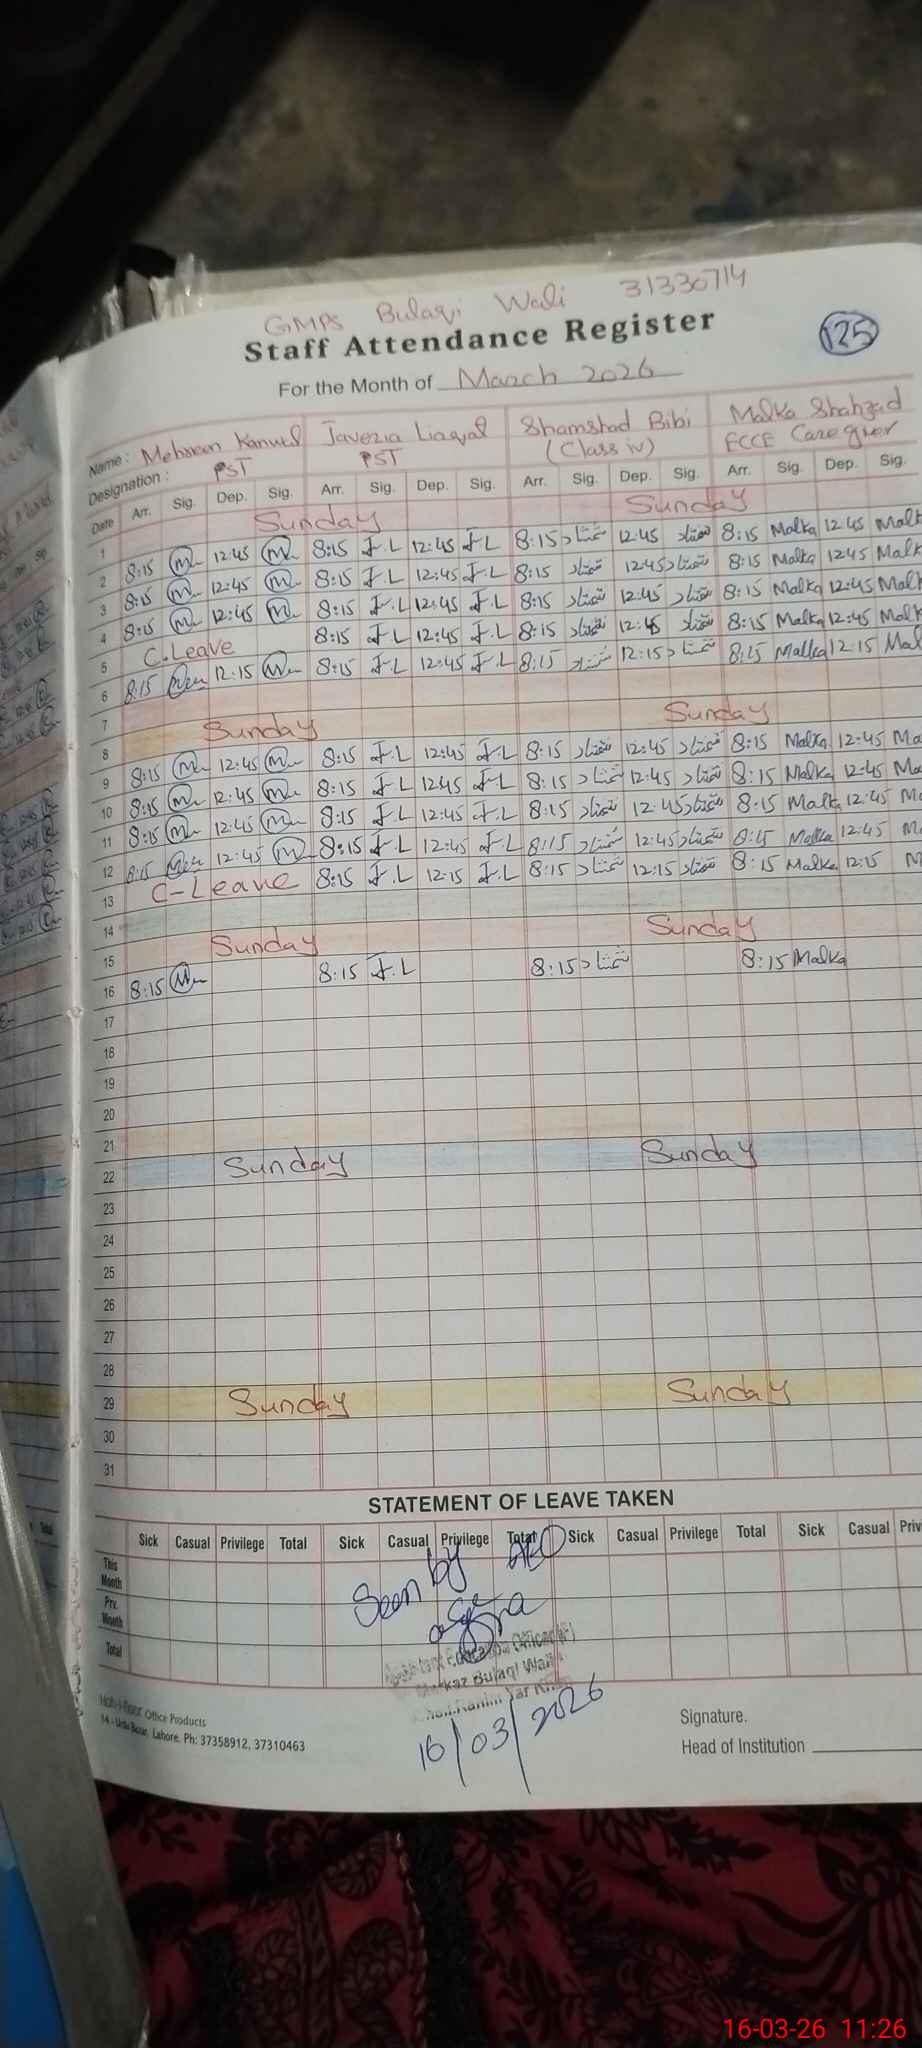 GMPS Bulaqi Wali 31330714
Staff Attendance Register
125
For the Month of March 2026
Name: Mehreen Kanwal Javezia Liaqat Shamshad Bibi Malka Shahzad
Designation: PST PST (Class iv) ECCE Caregiver
Date Arr. Sig. Dep. Sig. Arr. Sig. Dep. Sig. Arr. Sig. Dep. Sig. Arr. Sig. Dep. Sig.
1 Sunday Sunday
2 8:15 12:45 8:15 J.L 12:45 J.L 8:15 شمشاد 12:45 شمشاد 8:15 Malka 12:45 Malk
3 8:15 12:45 8:15 J.L 12:45 J.L 8:15 شمشاد 12:45 شمشاد 8:15 Malka 12:45 Malk
4 8:15 12:45 8:15 J.L 12:45 J.L 8:15 شمشاد 12:45 شمشاد 8:15 Malka 12:45 Malk
5 C.Leave 8:15 J.L 12:45 J.L 8:15 شمشاد 12:45 شمشاد 8:15 Malka 12:45 Malk
6 8:15 12:15 8:15 J.L 12:45 J.L 8:15 شمشاد 12:15 شمشاد 8:15 Malka 12:15 Mal
7
8 Sunday Sunday
9 8:15 12:45 8:15 J.L 12:45 J.L 8:15 شمشاد 12:45 شمشاد 8:15 Malka 12:45 Ma
10 8:15 12:45 8:15 J.L 12:45 J.L 8:15 شمشاد 12:45 شمشاد 8:15 Malka 12:45 Ma
11 8:15 12:45 8:15 J.L 12:45 J.L 8:15 شمشاد 12:45 شمشاد 8:15 Malka 12:45 Ma
12 8:15 12:45 8:15 J.L 12:45 J.L 8:15 شمشاد 12:45 شمشاد 8:15 Malka 12:45 M
13 C-Leave 8:15 J.L 12:15 J.L 8:15 شمشاد 12:15 شمشاد 8:15 Malka 12:15 M
14
15 Sunday Sunday
16 8:15 8:15 J.L 8:15 شمشاد 8:15 Malka
17
18
19
20
21
22 Sunday Sunday
23
24
25
26
27
28
29 Sunday Sunday
30
31
STATEMENT OF LEAVE TAKEN
Sick Casual Privilege Total Sick Casual Privilege Total Sick Casual Privilege Total Sick Casual Priv
This Month
Prv. Month
Total
Seen by AEO
Markaz Bulaqi Wali
16/03/2026
Office Products
14 - Urdu Bazar, Lahore. Ph: 37358912, 37310463
Signature.
Head of Institution
16-03-26 11:26